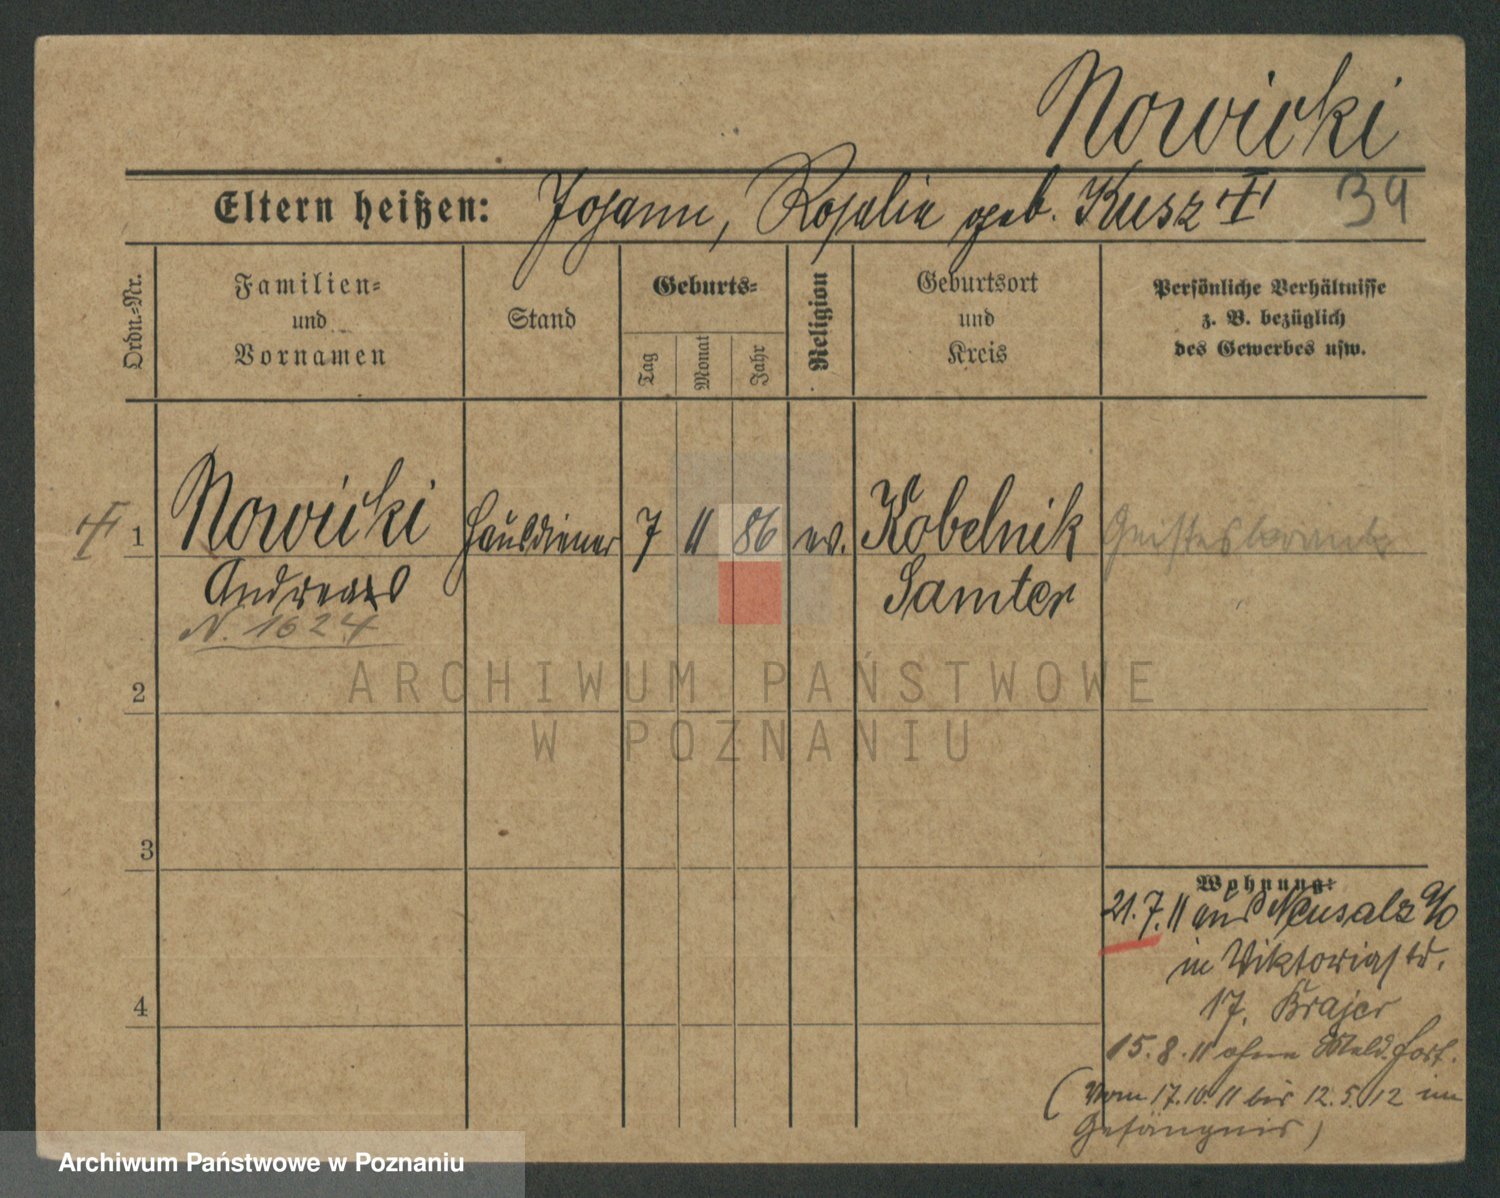 Nowicki
Eltern heißen: Johann, Rosalie geb. Kusz 39
Ordn.-Nr.
Familien- und Vornamen
Stand
Geburts-
Tag
Monat
Jahr
Religion
Geburtsort und Kreis
Persönliche Verhältnisse
z. B. bezüglich
des Gewerbes usw.
1 Nowicki Hausdiener 7 11 86 ev. Kobelnik Geisteskrank
Andreas Samter
N. 1624
2
3
4
Wohnung:
21.7.11 aus Neusalz a/O
in Viktoriastr.
17. Krajer
15.8.11 ohne Meld. fort.
(Vom 17.10.11 bis 12.5.12 im
Gefängnis)
ARCHIWUM PAŃSTWOWE
W POZNANIU
Archiwum Państwowe w Poznaniu